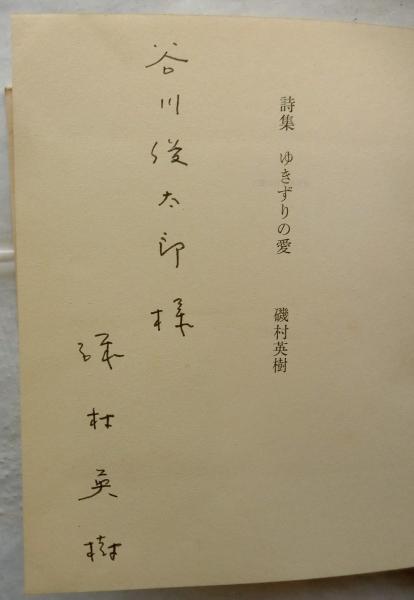 詩集 ゆきずりの愛 磯村英樹
谷川俊太郎様
磯村英樹